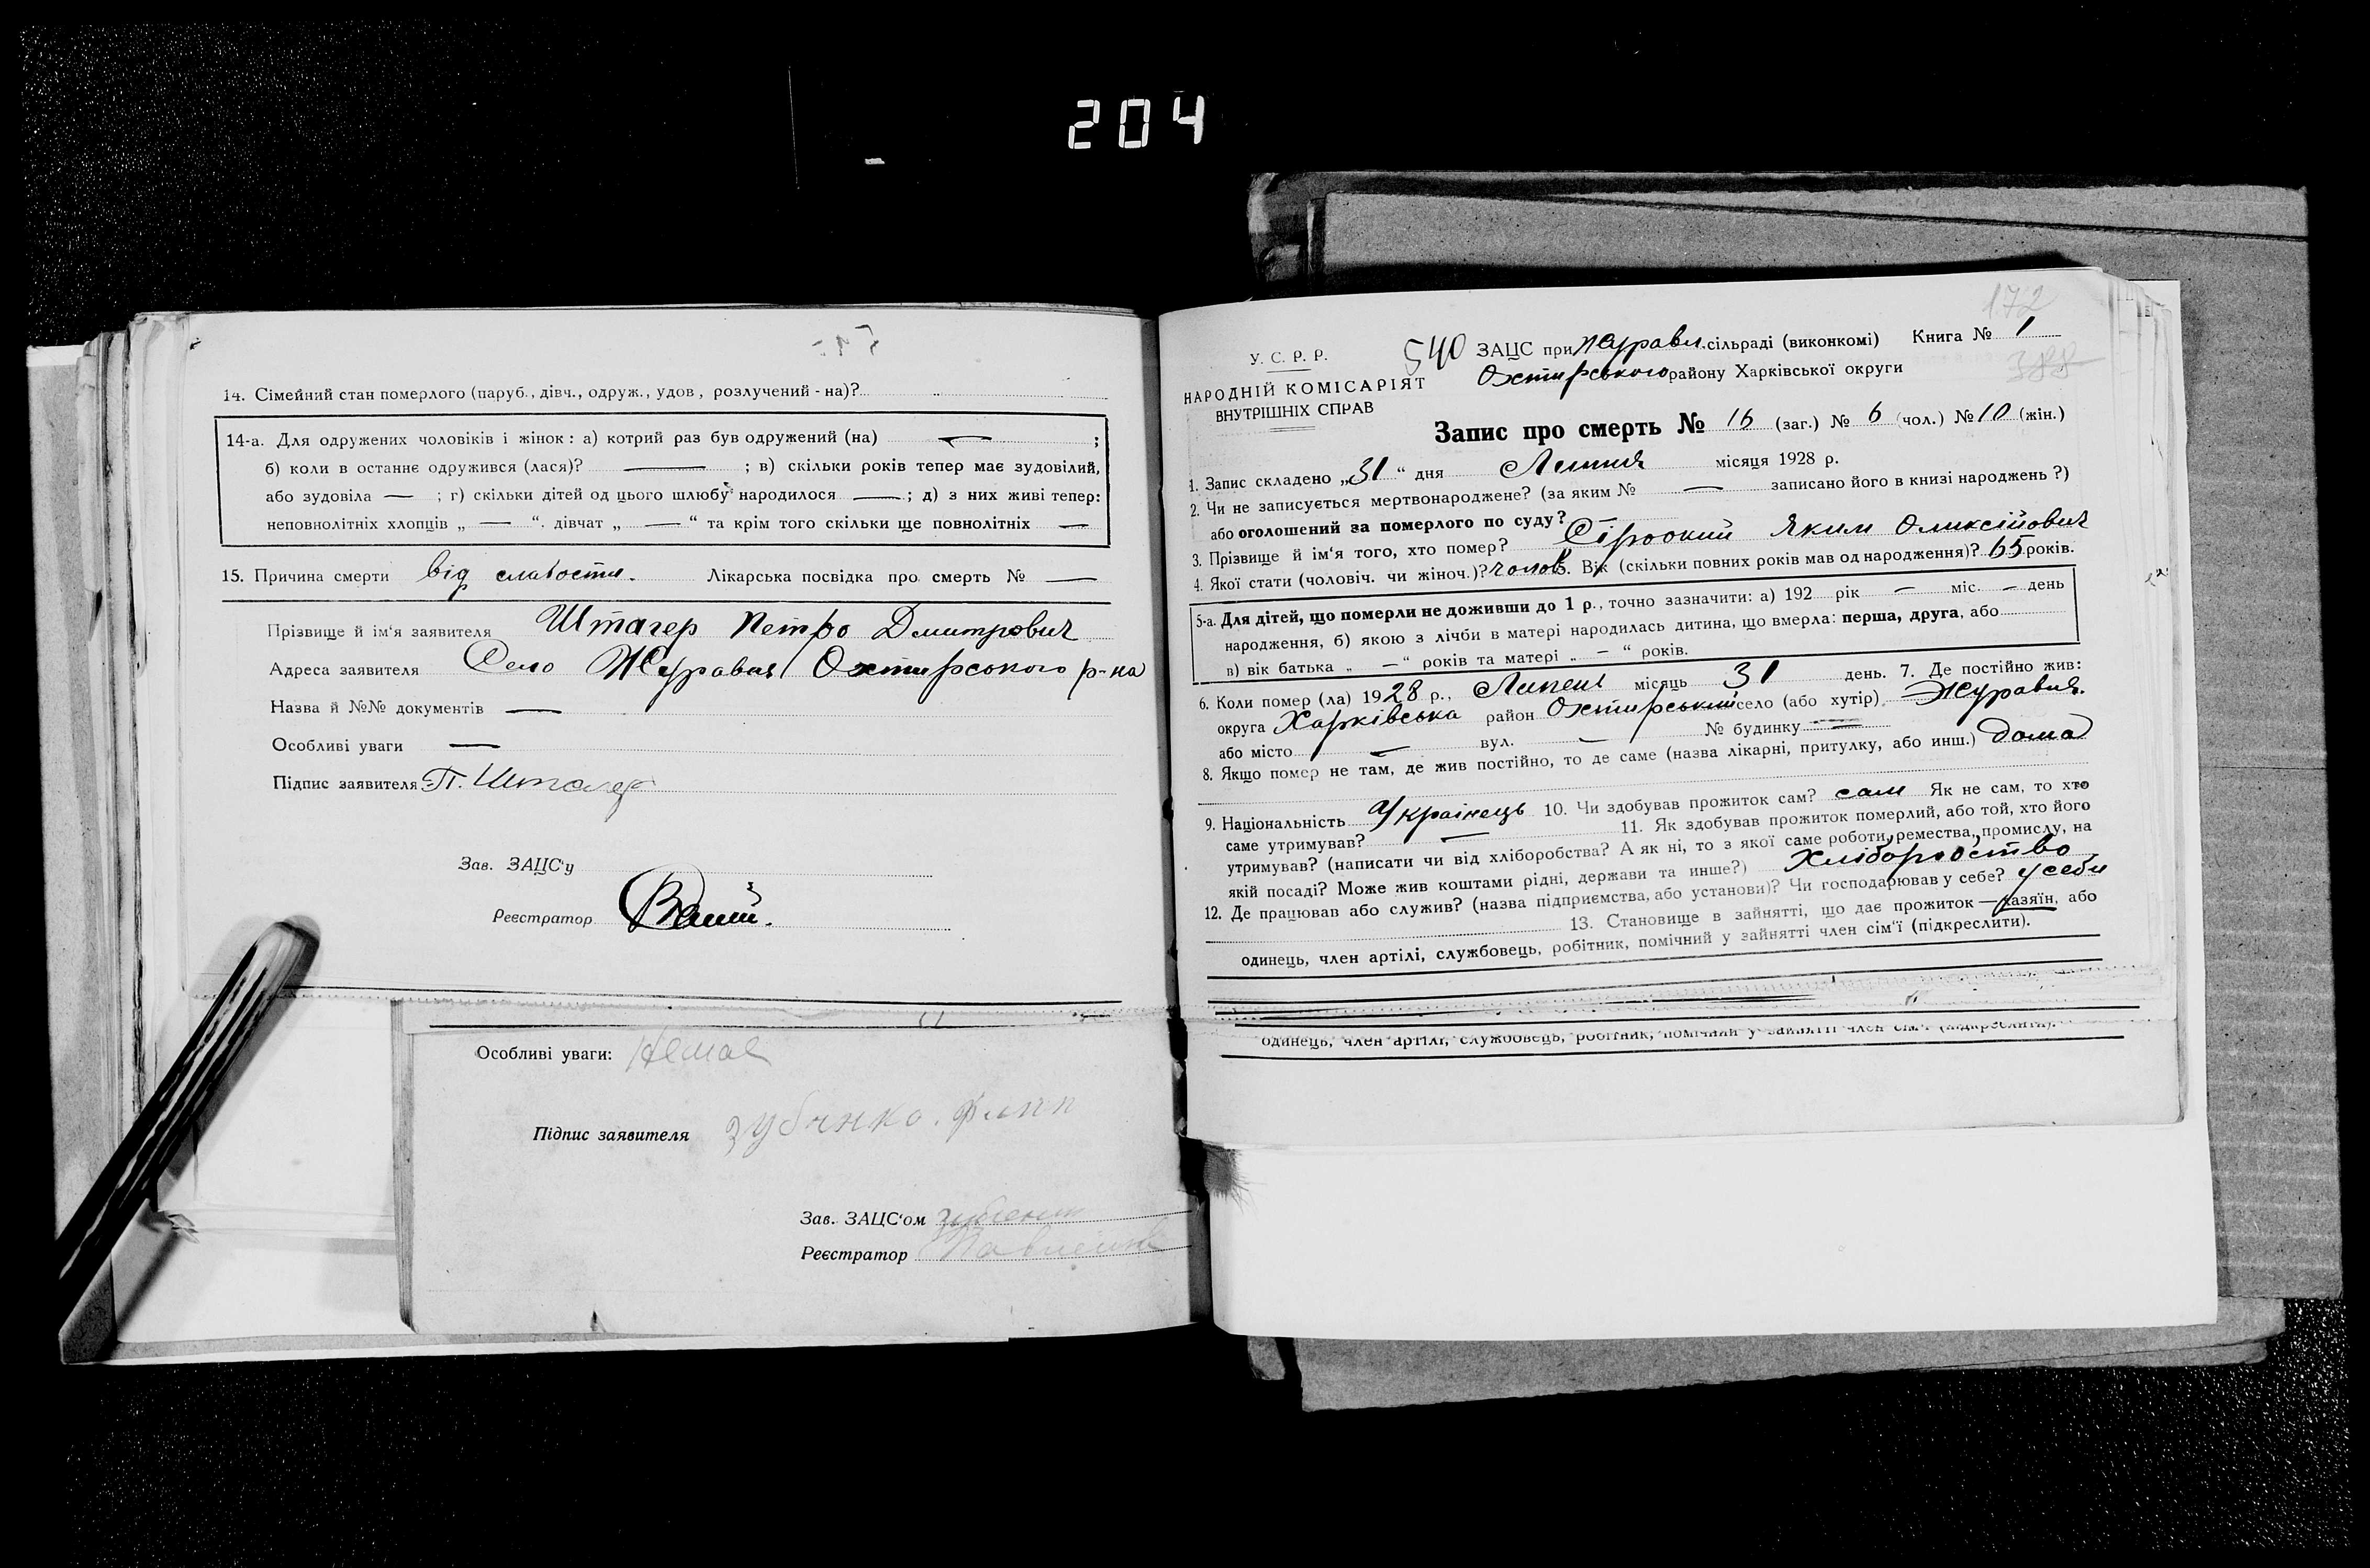 204
14. Сімейний стан померлого (паруб., дівч., одруж., удов, розлучений-на)?
14-а. Для одружених чоловіків і жінок: а) котрий раз був одружений (на) — ;
б) коли в останнє одружився (лася)? — ; в) скільки років тепер має зудовілий,
або зудовіла — ; г) скільки дітей од цього шлюбу народилося — ; д) з них живі тепер:
неповнолітніх хлопців „ — “. дівчат „ — “ та крім того скільки ще повнолітніх —
15. Причина смерти від слабости. Лікарська посвідка про смерть № —
Прізвище й ім'я заявителя Штагер Петро Дмитрович
Адреса заявителя Село Журавня Охтирського р-на
Назва й №№ документів —
Особливі уваги —
Підпис заявителя П. Штагер
Зав. ЗАЦС'у
Реєстратор
Особливі уваги: Немає
Підпис заявителя
Зав. ЗАЦС'ом
Реєстратор
172
388
У. С. Р. Р.
НАРОДНІЙ КОМІСАРІЯТ
ВНУТРІШНІХ СПРАВ
540 ЗАЦС при Журавл. сільраді (виконкомі) Книга № 1
Охтирського району Харківської округи
Запис про смерть № 16 (заг.) № 6 (чол.) № 10 (жін.)
1. Запис складено „31“ дня Липня місяця 1928 р.
2. Чи не записується мертвонароджене? (за яким № — записано його в книзі народжень?)
або оголошений за померлого по суду? —
3. Прізвище й ім'я того, хто помер? Яким Оликсійович
4. Якої стати (чоловіч. чи жіноч.)? чолов. 5. Вік (скільки повних років мав од народження)? 65 років.
5-а. Для дітей, що померли не доживши до 1 р., точно зазначити: а) 192 рік — міс. — день
народження, б) якою з лічби в матері народилась дитина, що вмерла: перша, друга, або
в) вік батька „ — “ років та матері „ — “ років.
6. Коли помер (ла) 1928 р., Липень місяць 31 день. 7. Де постійно жив:
округа Харківська район Охтирський село (або хутір) Журавня.
або місто — вул. — № будинку —
8. Якщо помер не там, де жив постійно, то де саме (назва лікарні, притулку, або инш.) дома
9. Національність Украінець 10. Чи здобував прожиток сам? сам Як не сам, то хто
саме утримував? — 11. Як здобував прожиток померлий, або той, хто його
утримував? (написати чи від хліборобства? А як ні, то з якої саме роботи, ремества, промислу, на
якій посаді? Може жив коштами рідні, держави та инше?) Хліборобство
12. Де працював або служив? (назва підприємства, або установи)? Чи господарював у себе? у себи
13. Становище в зайнятті, що дає прожиток — хазяїн, або
одинець, член артілі, службовець, робітник, помічний у зайнятті член сім'ї (підкреслити).
одинець, член артілі, службовець, робітник, помічний у зайнятті член сім'ї (підкреслити).